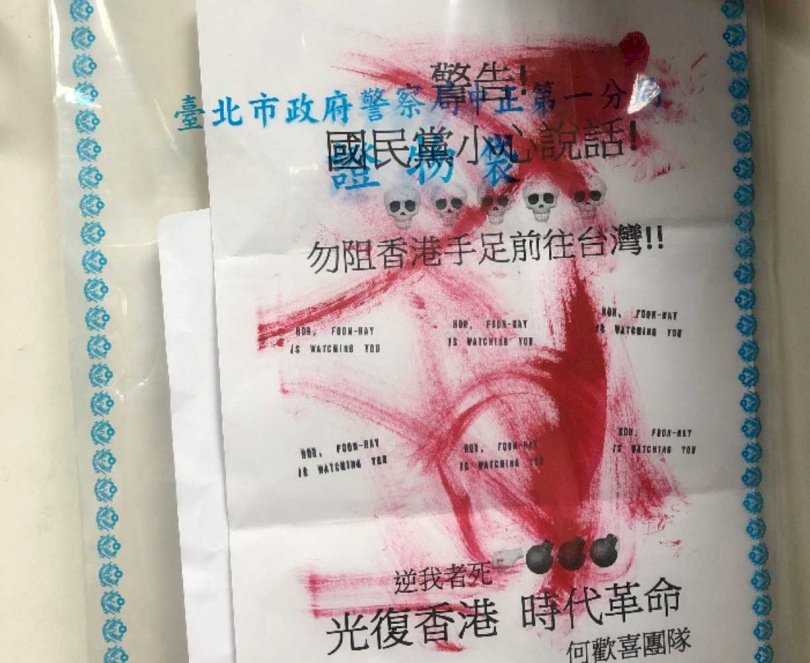 警告!
臺北市政府警察局中正第一分
國民黨小心說話!
證物袋
勿阻香港手足前往台灣!!
HOR, FOON-HAY
IS WATCHING YOU
HOR, FOON-HAY
IS WATCHING YOU
HOR, FOON-HAY
IS WATCHING YOU
HOR, FOON-HAY
IS WATCHING YOU
HOR, FOON-HAY
IS WATCHING YOU
HOR, FOON-HAY
IS WATCHING YOU
逆我者死
光復香港 時代革命
何歡喜團隊